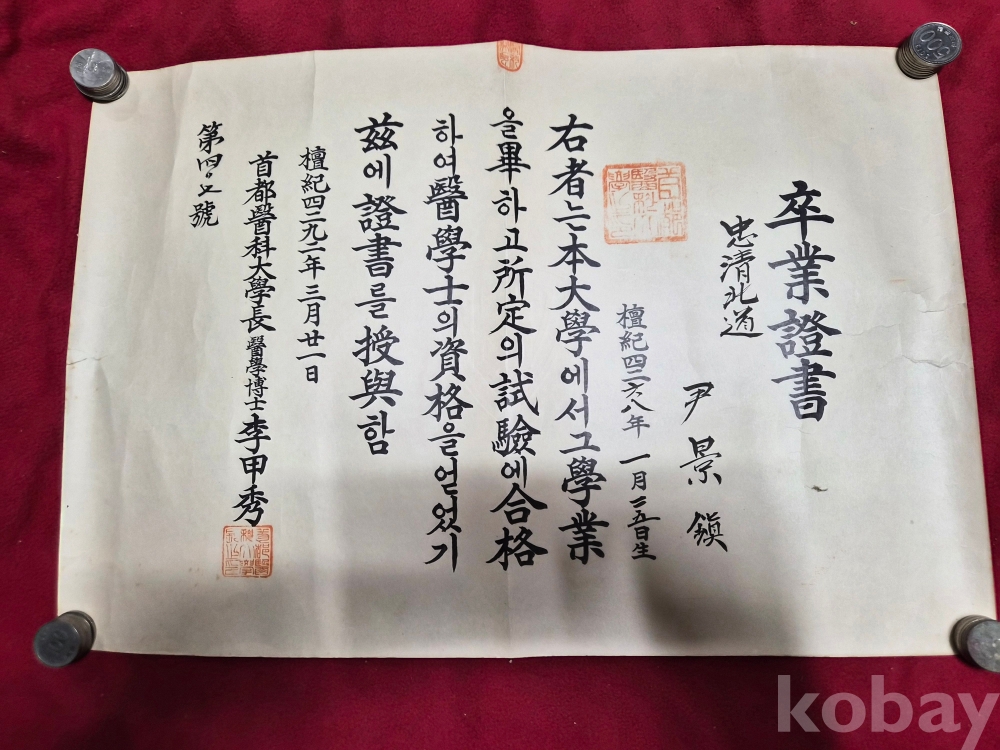 卒業證書
忠清北道
尹景鎭
檀紀四二六八年 一月二五日生
右者는本大學에서그學業
을畢하고所定의試驗에合格
하여醫學士의資格을얻었기
玆에證書를授與함
檀紀四二九二年三月廿一日
首都醫科大學長 醫學博士 李甲秀
第四〇五號
kobay